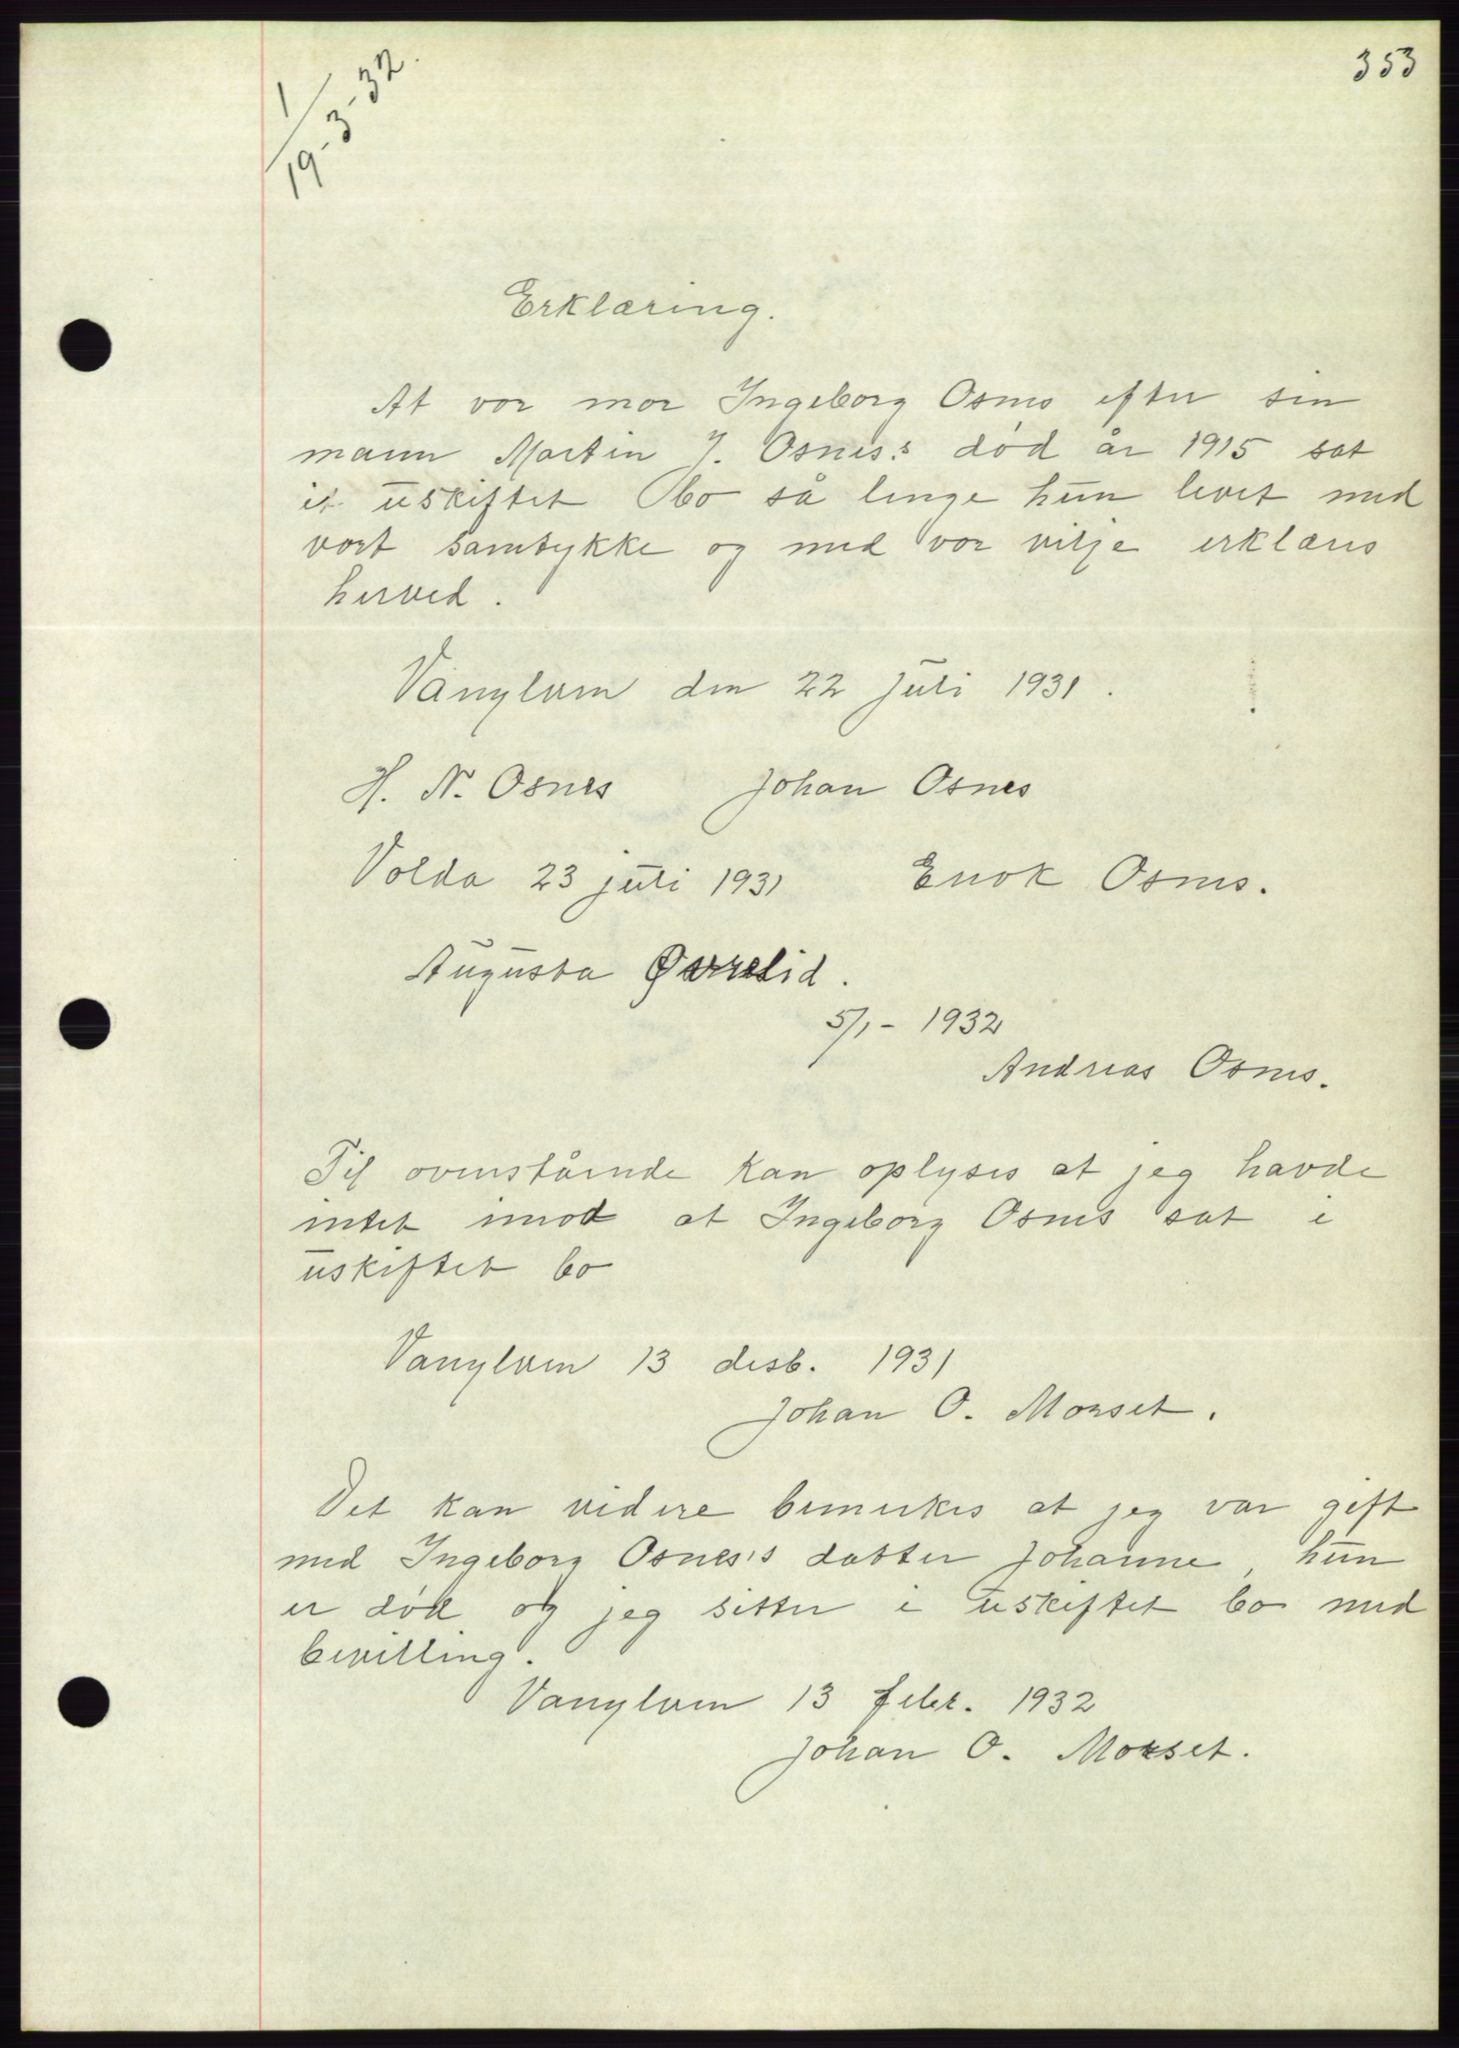 353
1/19-3-32.
Erklæring.
At vor mor Ingeborg Osnes efter sin
mann Martin J. Osnes's død år 1915 sat
i uskiftet bo så lenge hun levet med
vort samtykke og med vor vilje erklæres
herved.
Vanylven den 22 juli 1931.
H. N. Osnes Johan Osnes
Volda 23 juli 1931 Enok Osnes.
Augusta
5/1- 1932
Andreas Osnes.
Til ovenstående kan oplyses at jeg havde
intet imod at Ingeborg Osnes sat i
uskiftet bo
Vanylven 13 desb. 1931
Johan O. Morset.
Det kan videre bemerkes at jeg var gift
med Ingeborg Osnes's datter Johanne, hun
er død og jeg sitter i uskiftet bo med
bevilling.
Vanylven 13 febr. 1932
Johan O. Morset.